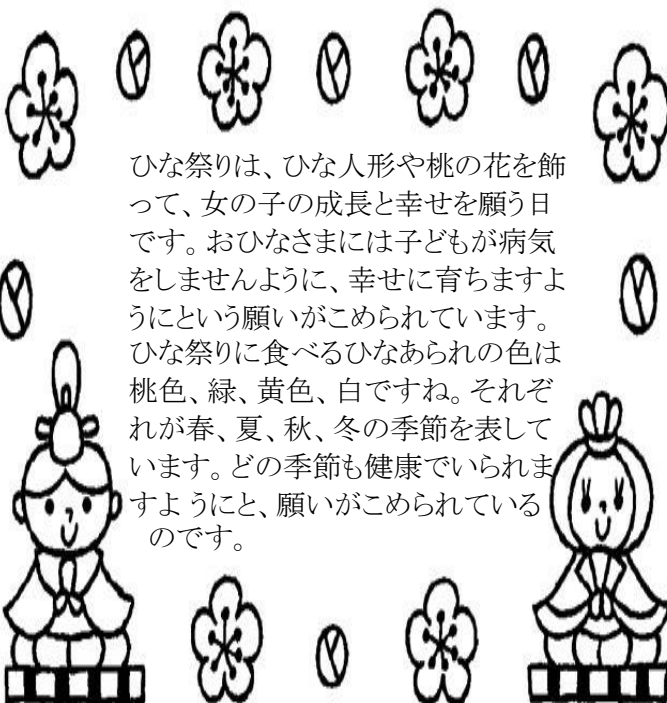 ひな祭りは、ひな人形や桃の花を飾
って、女の子の成長と幸せを願う日
です。おひなさまには子どもが病気
をしませんように、幸せに育ちますよ
うにという願いがこめられています。
ひな祭りに食べるひなあられの色は
桃色、緑、黄色、白ですね。それぞ
れが春、夏、秋、冬の季節を表して
います。どの季節も健康でいられま
すようにと、願いがこめられている
のです。